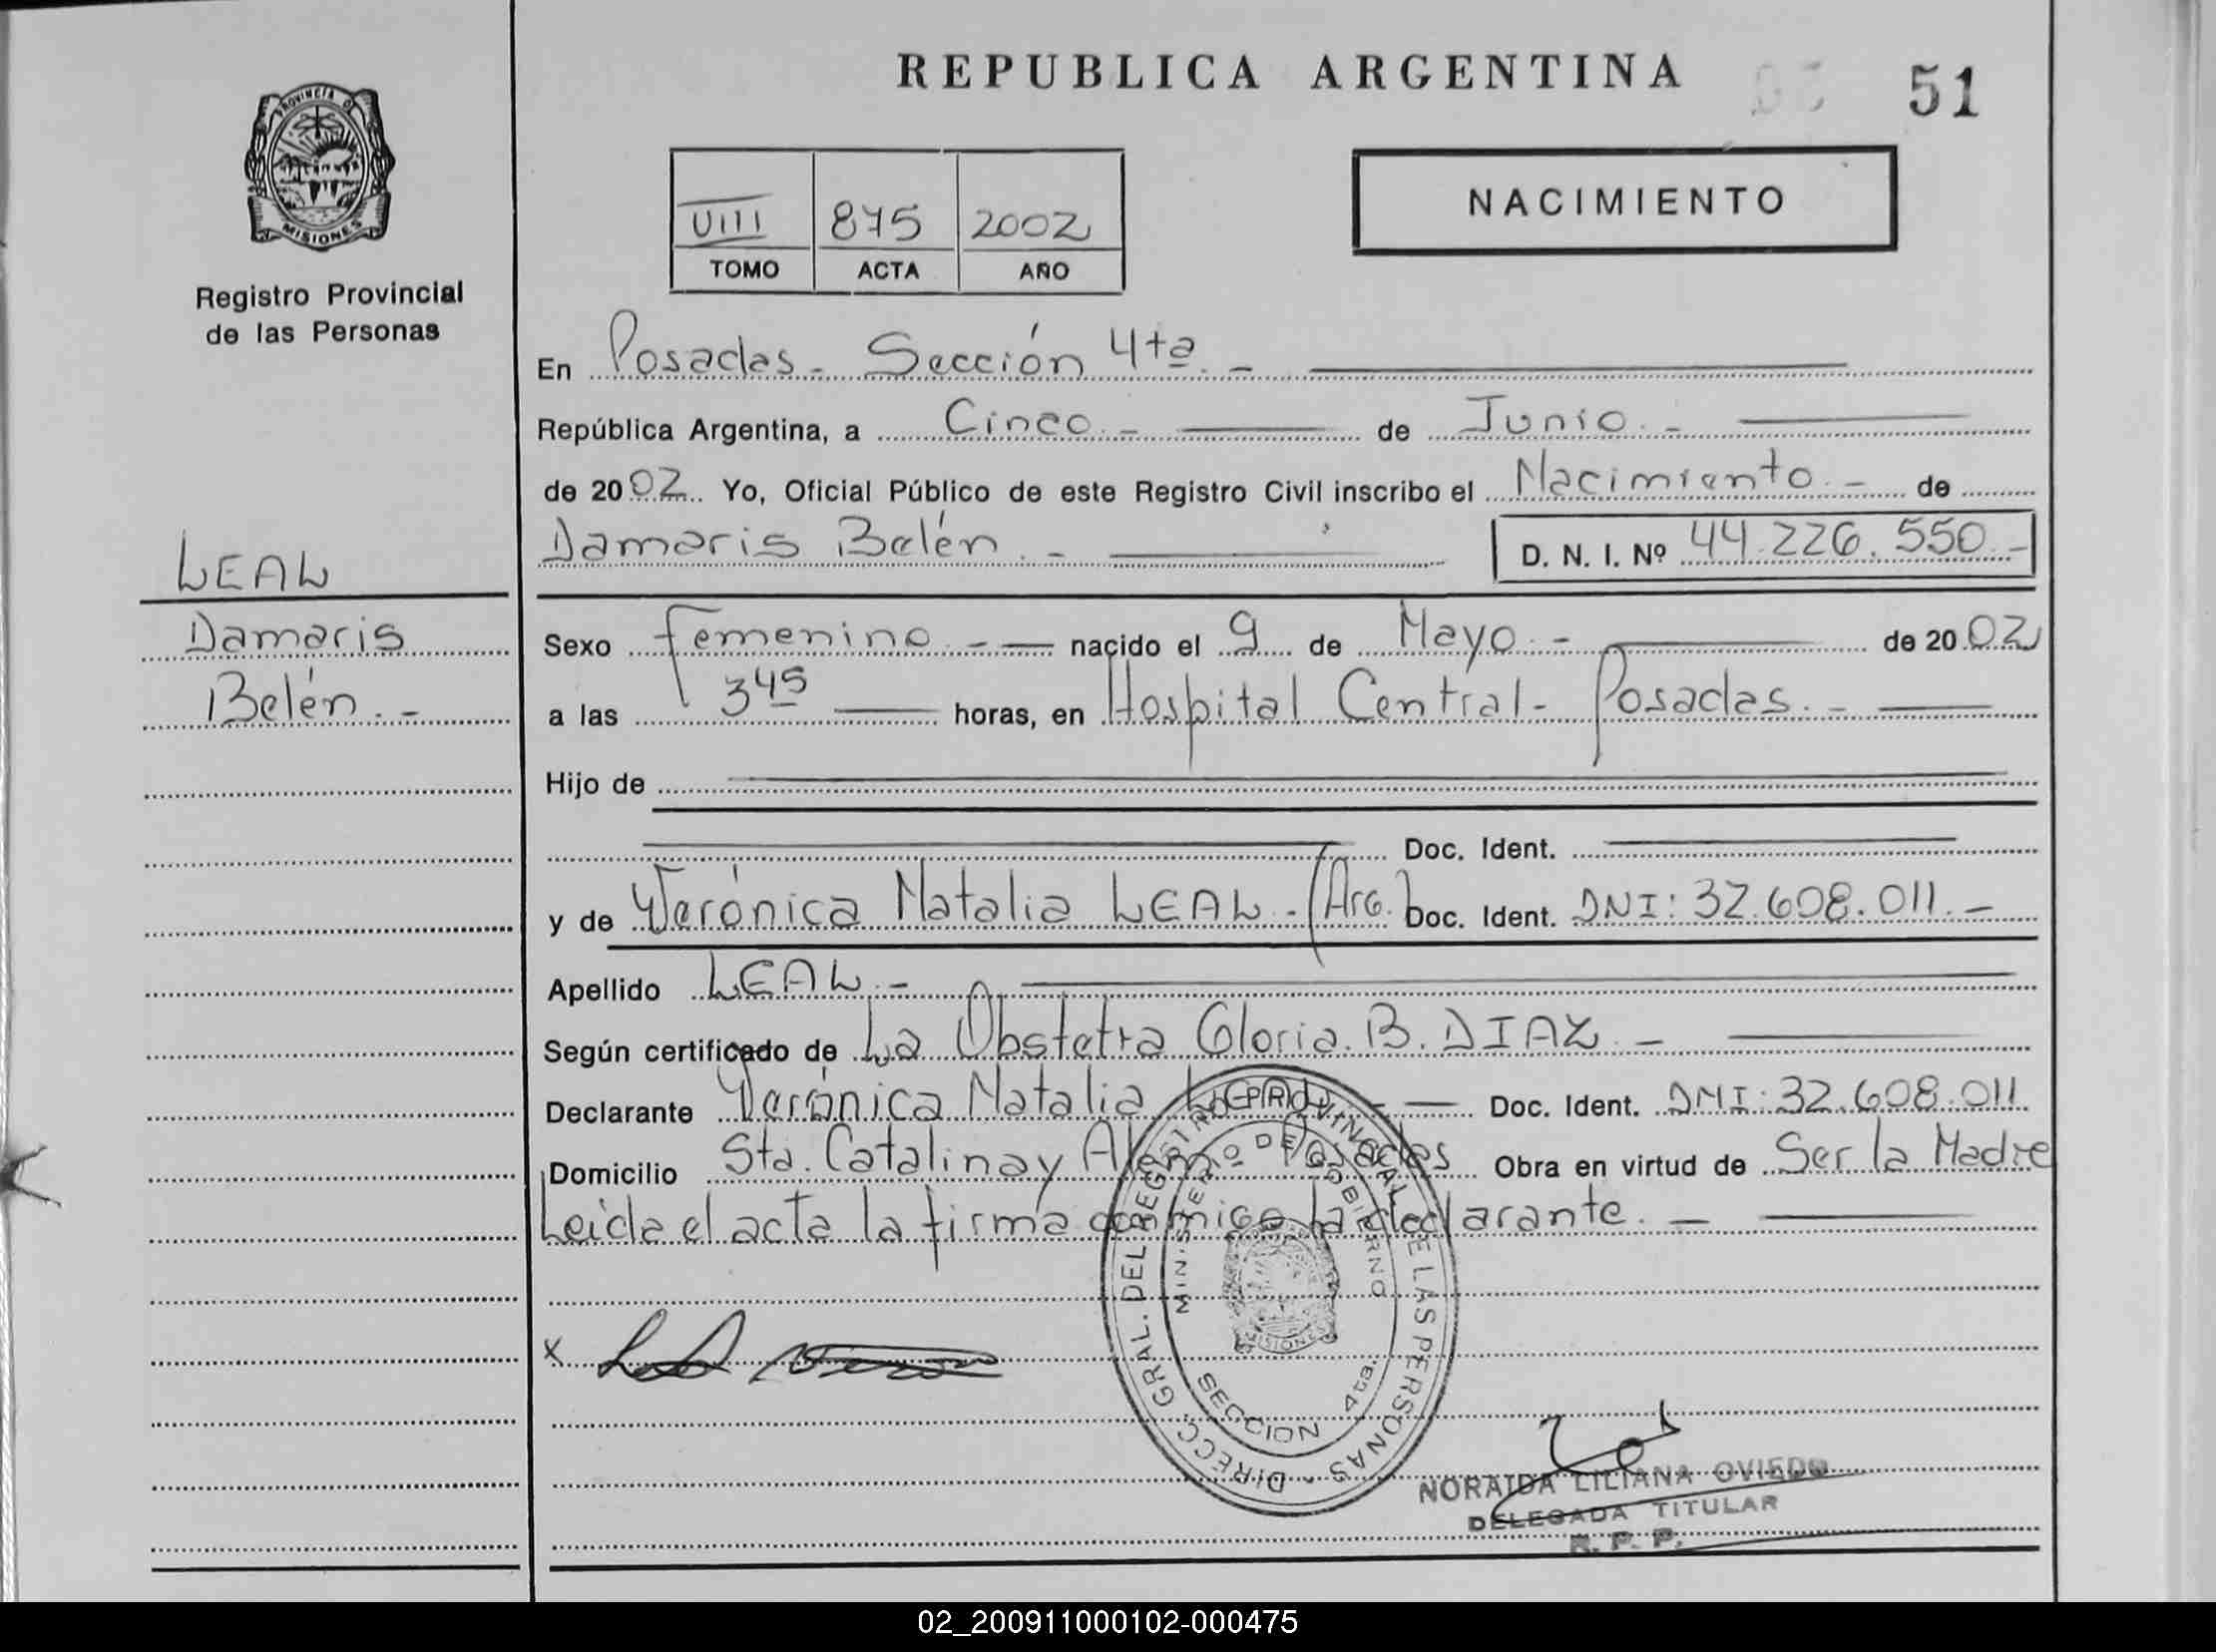 REPUBLICA ARGENTINA
51
PROVINCIA DE
MISIONES
Registro Provincial
de las Personas
VIII 875 2002
TOMO ACTA AÑO
NACIMIENTO
En Posadas - Sección 4ta. -
República Argentina, a Cinco. - de Junio. -
de 2002. Yo, Oficial Público de este Registro Civil inscribo el Nacimiento. - de
Damaris Belén. - D. N. I. Nº 44.226.550. -
LEAL
Damaris
Belén. -
Sexo Femenino. - nacido el 9 de Mayo. - de 2002
a las 3 45 horas, en Hospital Central - Posadas. -
Hijo de
Doc. Ident.
y de Verónica Natalia LEAL - (Arg.) Doc. Ident. DNI: 32.608.011. -
Apellido LEAL. -
Según certificado de La Obstetra Gloria. B. DIAZ. -
Declarante Verónica Natalia LEAL - Doc. Ident. DNI: 32.608.011
Domicilio Sta. Catalina y Alem - Posadas Obra en virtud de Ser la Madre
Leida el acta la firma conmigo la declarante. -
DIRECC. GRAL. DEL REGISTRO PROVINCIAL DE LAS PERSONAS -
MINISTERIO DE GOBIERNO
MISIONES
SECCION 4ta.
X
NORAIDA LILIANA OVIEDO
DELEGADA TITULAR
R. P. P.
02_200911000102-000475